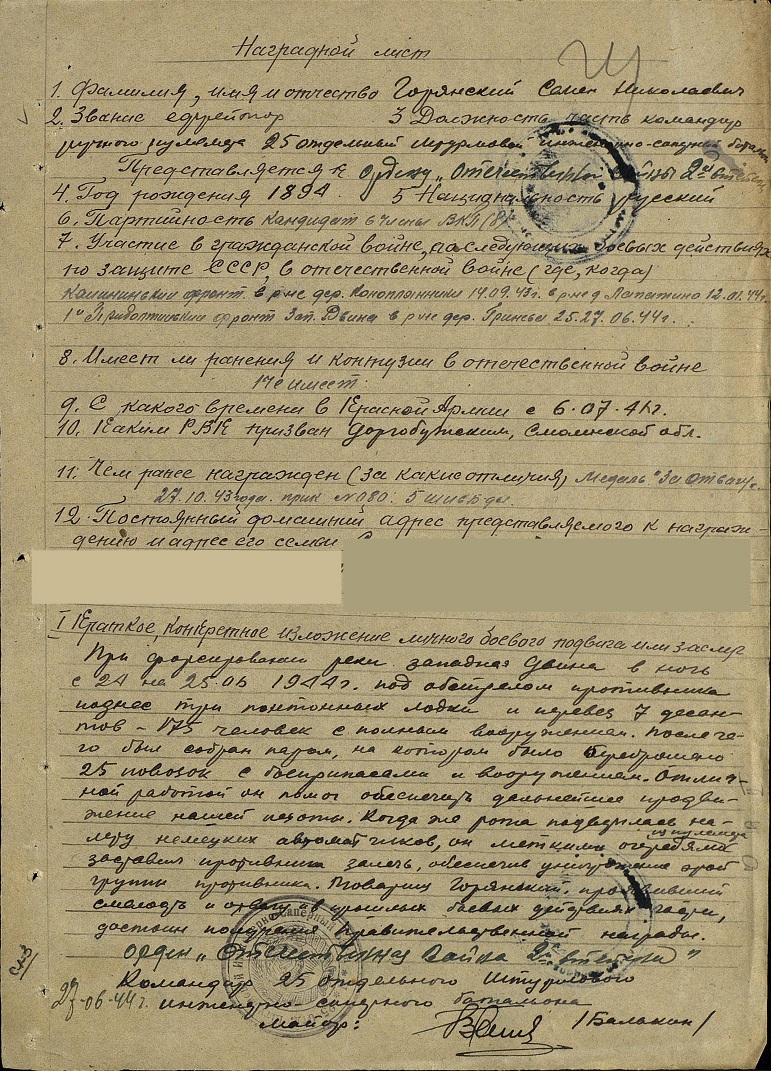 Наградной лист
1. Фамилия, имя и отчество Горянский Семен Николаевич
2. Звание ефрейтор 3 Должность часть командир
ручного пулемета 25 отдельный штурмовой инженерно-саперный батальон
Представляется к ордену "Отечественной войны 2ой степени
4. Год рождения 1894 5 Национальность русский
6. Партийность кандидат в члены ВКП(б)
7. Участие в гражданской войне, последующих боевых действиях
по защите СССР, в отечественной войне (где, когда)
Калининский фронт в р-не дер. Коноплянники 14.09.43г. в р-не д Лапатино 12.01.44г.
1й Прибалтийский фронт Зап. Двина в р-не дер. 25.27.06.44г.
8. Имеет ли ранения и контузии в отечественной войне
Не имеет.
9. С какого времени в Красной Армии с 6.07.41г.
10. Каким РВК призван Доргобужским, Смоленской обл.
11. Чем ранее награжден (за какие отличия) Медаль "За Отвагу"
27.10.43 года. прик N 080.
12. Постоянный домашний адрес представляемого к награж-
дению и адрес его семьи
I Краткое, конкретное изложение личного боевого подвига или заслуг
При форсировании реки западная Двина в ночь
с 24 на 25.06 1944г. под обстрелом противника
поднес три понтонных лодки и перевез 7 десан-
тов – 175 человек с полным вооружением. После че-
го был собран паром, на котором было переброшено
25 повозок с боеприпасами и вооружением. Отлич-
ной работой он помог обеспечить дальнейшее продви-
жение нашей пехоты. Когда же рота подверглась на-
лету немецких автоматчиков, он меткими очередями
из пулемета
заставил противника залечь, обеспечив уничтожение этой
группы противника. Товарищ Горянский, проявивший
смелость и отвагу и в прошлых боевых действиях части,
достоин получения правительственной награды.
орден "Отечественная война 2ой степени"
Командир 25 отдельного Штурмового
27-06-44г. инженерно-саперного батальона
Майор: /Балакин/